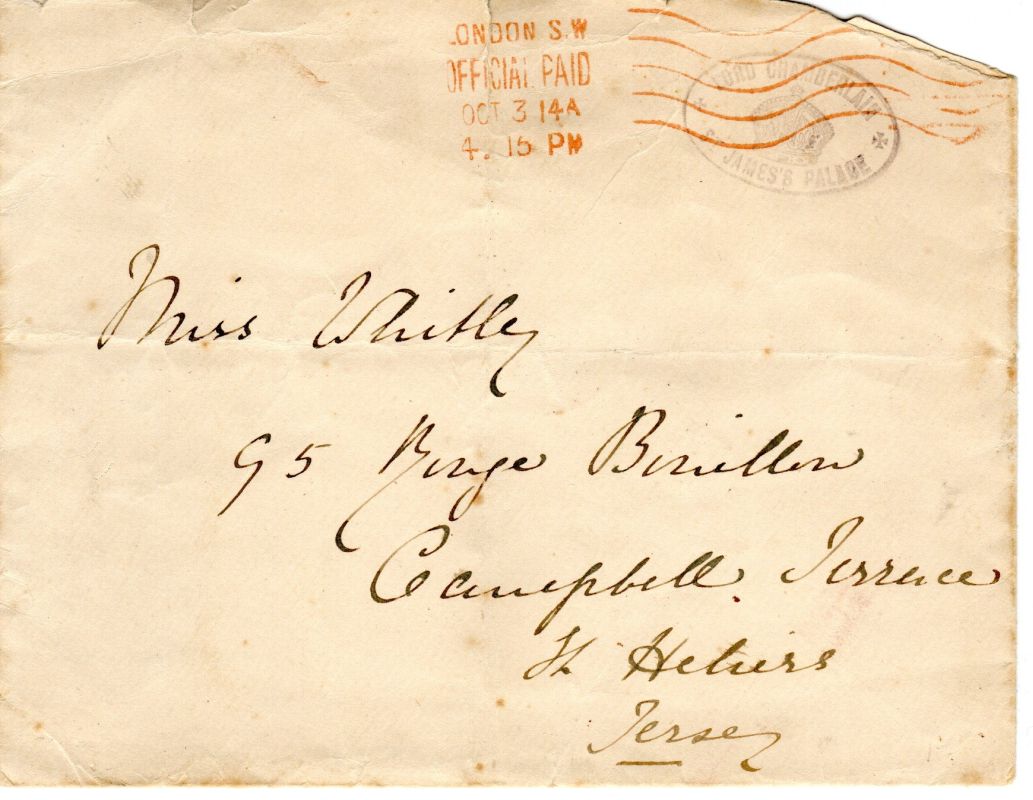 LONDON S.W
OFFICIAL PAID
OCT 3 14A
4. 15 PM
LORD CHAMBERLAIN
JAMES'S PALACE
Miss Whitley
95 Rouge Bouillon
Campbell Terrace
St Heliers
Jersey